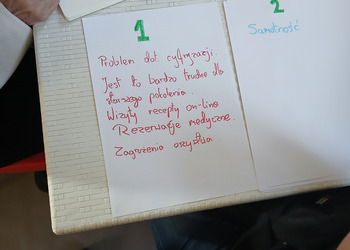 1
Problem dot. cyfryzacji.
Jest to bardzo trudne dla
starszego pokolenia.
Wizyty recepty on-line
Rezerwacje medyczne.
Zagrożenia oszustwa
2
Samotność